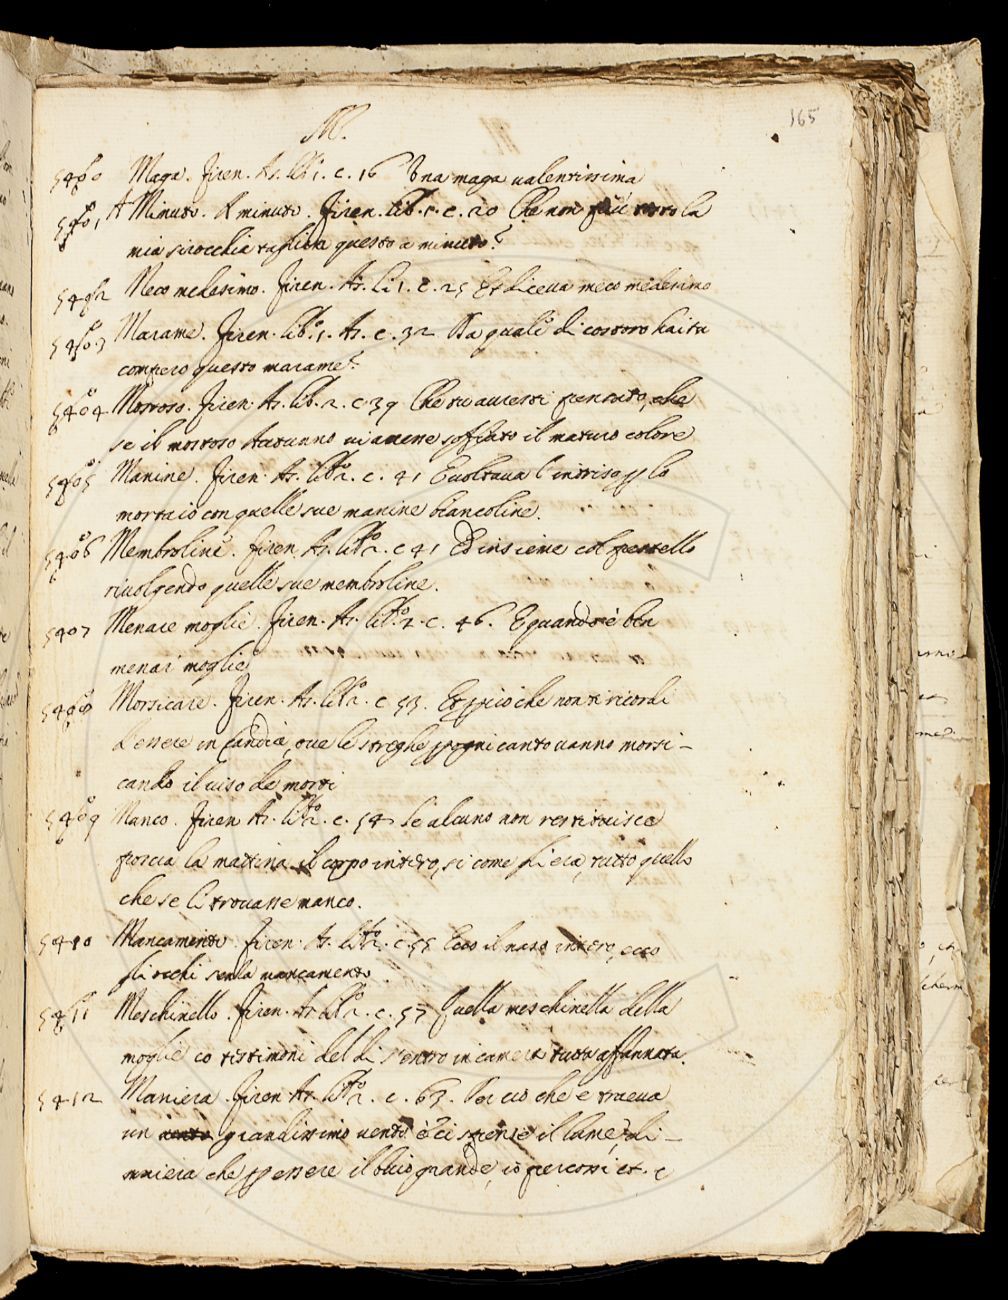 M.
165
5400 Maga. Firen. As. lib. 1. c. 16 Una maga valentissima
5401 A Minuto. A minuto. Firen. lib. 1. c. 20 Che non
mia sirocchia tagliam questo a minuto?
5402 Meco medesimo. Firen. As. li 1. c. 25 Et diceva meco medesimo
5403 Marame. Firen. lib.º 1. As. c. 32 Da quali di costoro hai tu
compero questo marame?
5404 Mostoso. Firen. As. lib. 2. c 39 Che tu avessi pensato, che
se il mostoso Autunno ui avene soffiato il maturo colore
5405 Manine. Firen. As. libº 2. c. 41 E voltava l'intriso p lo
mortaio con quelle sue manine biancoline.
5406 Membroline. Firen As. libº 2. c 41 Ed insieme col pestello
rivolgendo quelle sue membroline.
5407 Menare moglie. Firen. As. libº 2. c. 46. E quando è ben
menai moglie
5408 Morsicare. Firen. As. libº 2. c 53. Et pciò che non ti ricordi
d'essere in Candia, ove le streghe p ogni canto vanno morsi-
cando il viso de morti
5409 Manco. Firen As. libº 2. c. 54 Se alcuno non restituisce
poscia la mattina il corpo intero, si come gli era, tutto quello
che se li trovasse manco.
5410 Mancamento. Firen. As. libº 2. c. 55 Ecco il naso intero, ecco
gli occhi senza mancamento
5411 Meschinello. Firen. As. libº 2. c. 57 Quella meschinella della
moglie co testimoni del dì entro in camera tutta affannata.
5412 Maniera. Firen As. libº 2. c. 63. Per ciò che e traeva
un grandissimo vento e ci spense il lume, di-
maniera che p essere il buio grande, io percossi et. c